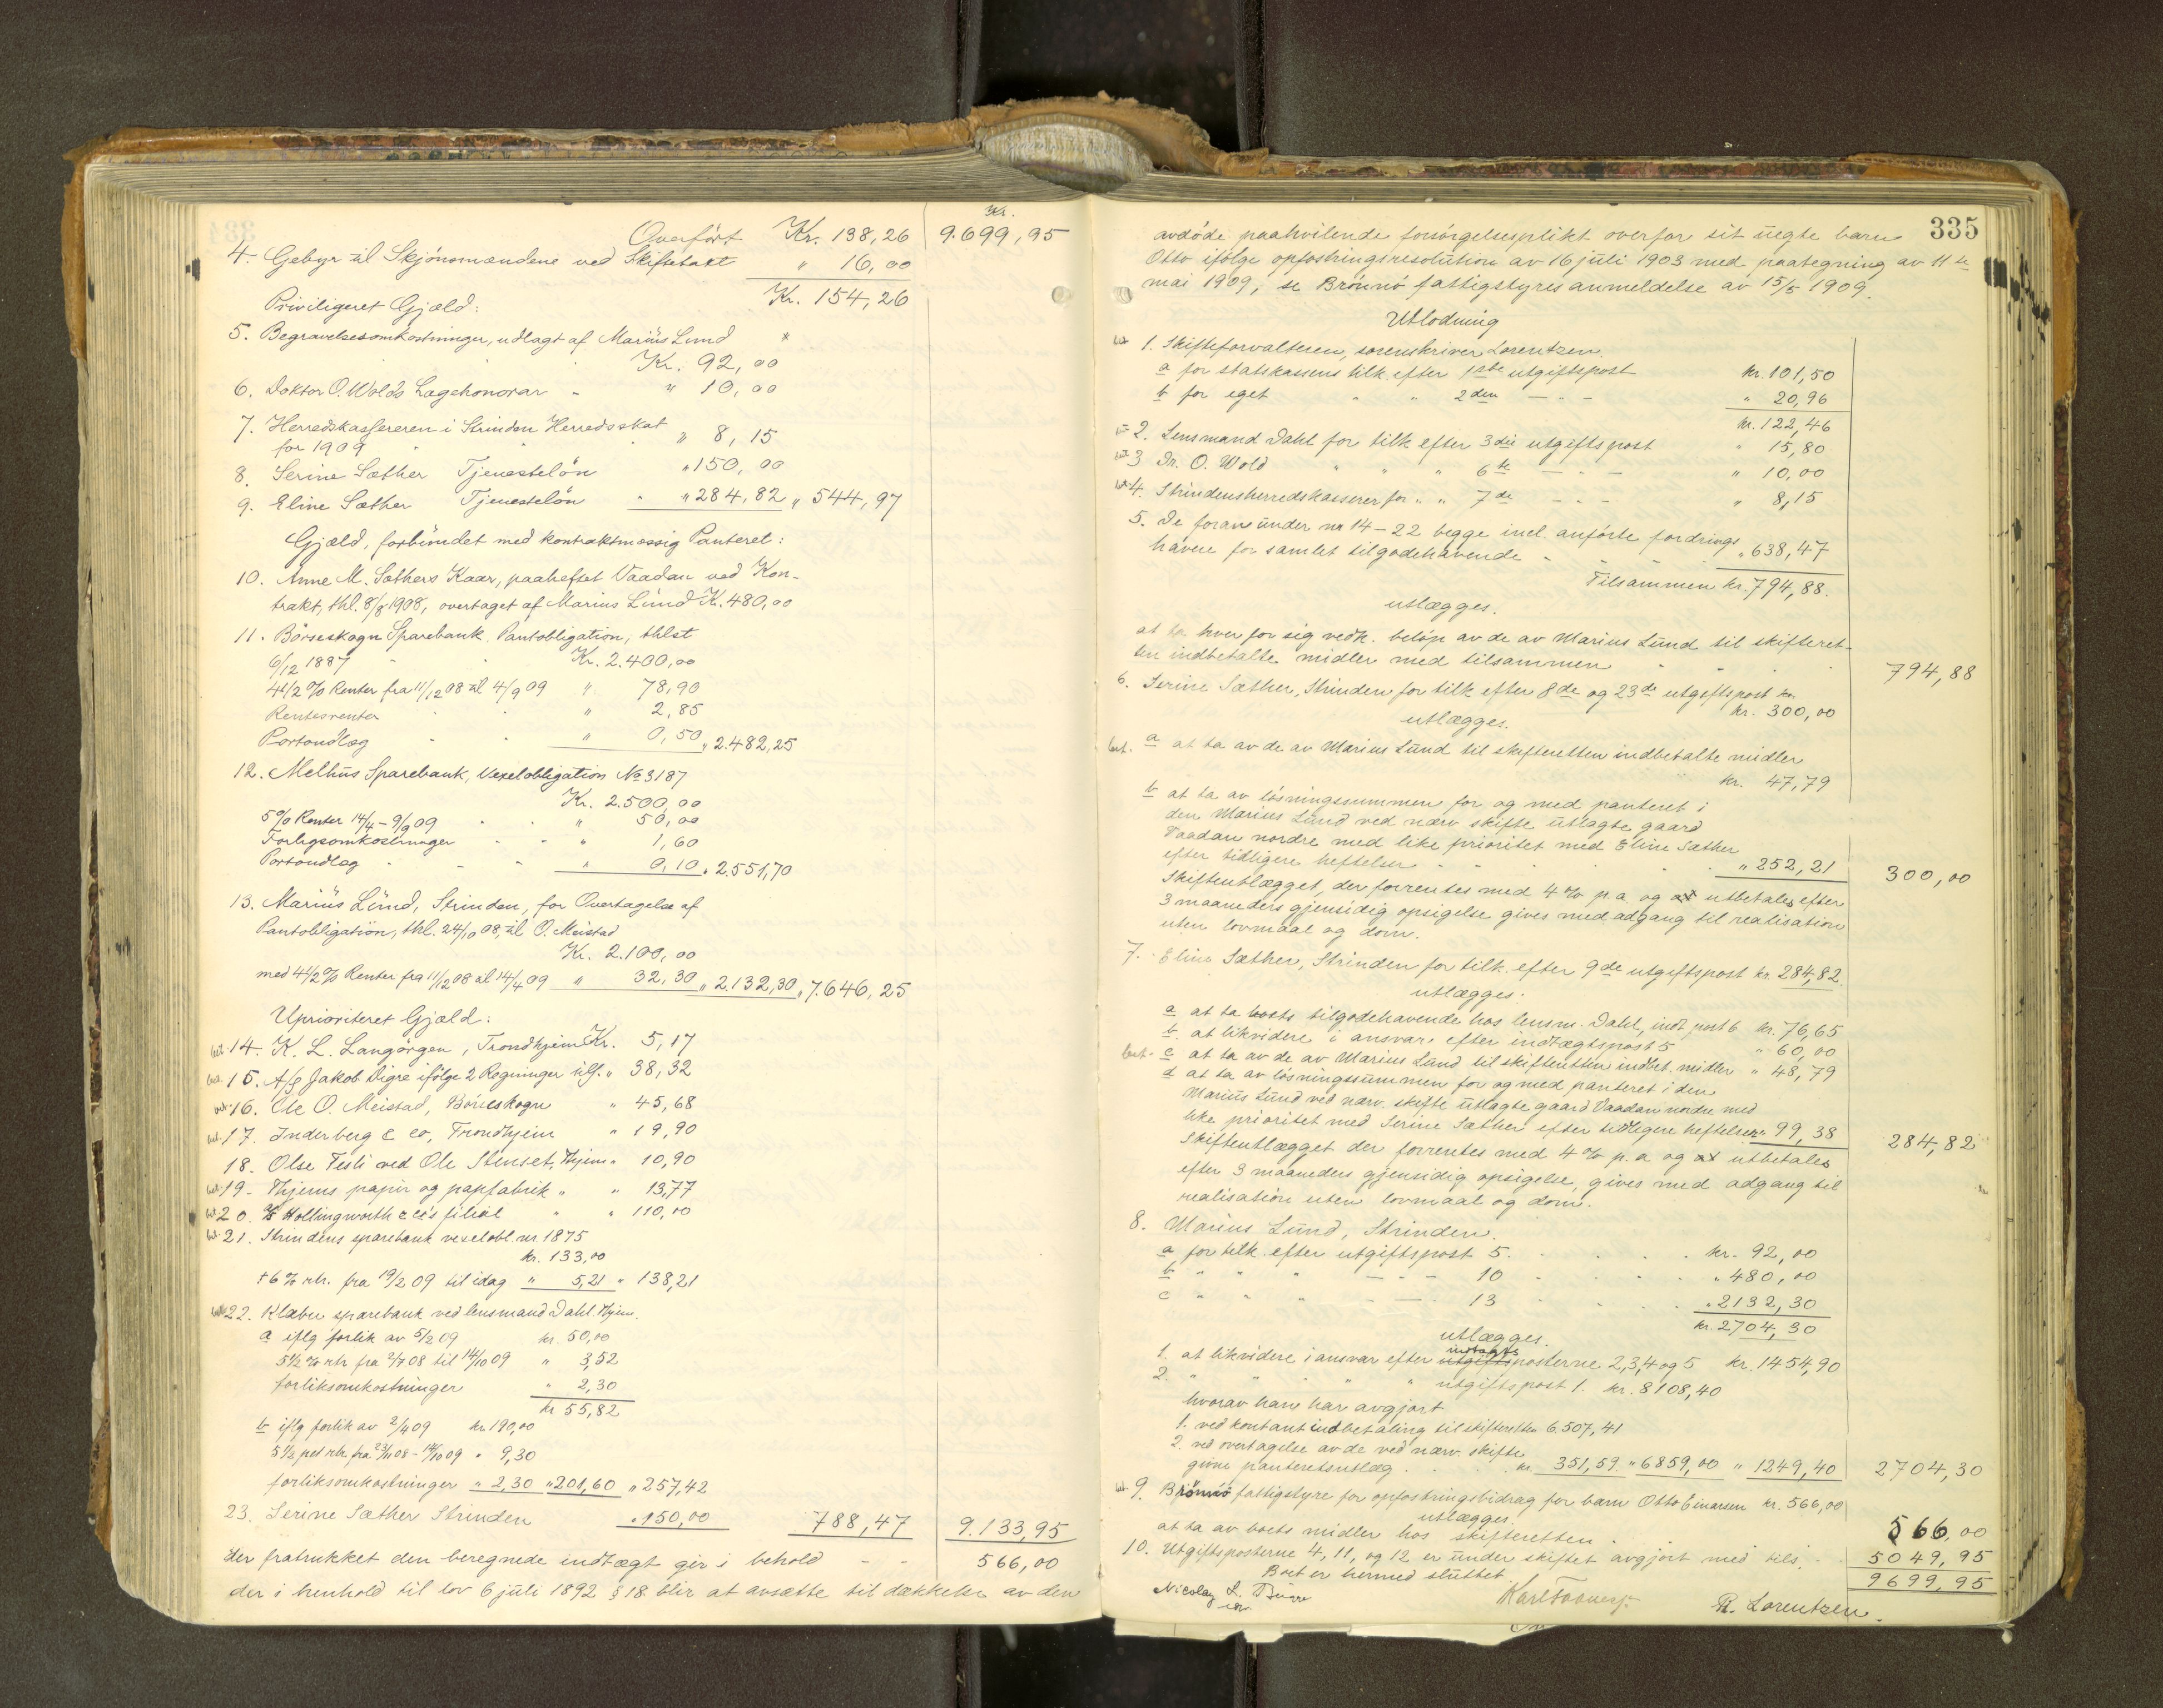 Kr.
Overført Kr. 138,26 9.699,95
4. Gebyr til Skjønsmændene ved Skiftetakt " 16,00
Kr. 154,26
Priviligeret Gjæld:
5. Begravelsesomkostninger, udlagt af Marius Lund
Kr. 92,00
6. Doktor O. Wolds Lægehonorar " 10,00
7. Herredskassereren i Strinden Herredsskat
for 1909 " 8,15
8. Serine Sæther Tjenesteløn " 150,00
9. Eline Sæther Tjenesteløn " 284,82 " 544,97
Gjæld, forbundet med kontraktmæssig Panteret:
10. Anne M. Sæthers Kaar, paaheftet Vaadan ved Kon-
trakt, thl. 8/8 1908, overtaget af Marius Lund K. 480,00
11. Börseskogn Sparebank. Pantobligation, thlst
6/12 1887 Kr. 2.400,00
4 1/2 % Renter fra 11/12 08 til 4/9 09 " 78,90
Rentesrenter " 2,85
Portoudlæg " 0,50 " 2.482,25
12. Melhus Sparebank, Vexelobligation No 3187
Kr. 2.500,00
5 % Renter 14/4 - 9/9 09 " 50,00
Forligsomkostninger " 1,60
Portoudlæg " 0,10 " 2.551,70
13. Marius Lund, Strinden, for Overtagelse af
Pantobligation, thl. 24/10 08, til O. Meistad
Kr. 2.100,00
med 4 1/2 % Renter fra 11/12 08 til 14/4 09 " 32,30 " 2.132,30 " 7.646,25
Uprioriteret Gjæld:
bet. 14. K. L. Langörgen, Trondhjem Kr. 5,17
bet. 15. A/S Jakob Digre ifölge 2 Regninger " 38,32
bet. 16. Ole O. Meistad, Börseskogn " 45,68
bet. 17. Inderberg & co, Trondhjem " 19,90
18. Olse Testi ved Ole Stenset, Thjem " 10,90
bet. 19. Thjems papir og papfabrik " " 13,77
bet. 20. Hollingworth & co's filial " " 110,00
bet. 21. Strindens sparebank vexelobl. nr. 1875
kr. 133,00
+ 6 % rtr. fra 19/2 09 til idag " 5,21 " 138,21
bet. 22. Klæbu sparebank ved lensmand Dahl Thjem.
a iflg forlik av 5/2 09 kr. 50,00
5 1/2 % rtr fra 2/7 08 til 14/10 09 " 3,52
forliksomkostninger " 2,30
kr 55,82
b iflg forlik av 2/4 09 kr. 190,00
5 1/2 pct rtr. fra 23/11 08 - 14/10 09 " 9,30
forliksomkostninger " 2,30 " 201,60 " 257,42
23. Serine Sæther Strinden " 150,00 788,47 9.133,95
der fratrukket den beregnede indtægt gir i behold - - 566,00
der i henhold til lov 6 juli 1892 § 18 blir at avsætte til dækkelse av den
335
avdöde paahvilende forsörgelsesplikt overfor sit uegte barn
Otto ifölge opfostringsresolution av 16 juli 1903 med paategning av 11te
mai 1909, se Brönnö fattigstyres anmeldelse av 15/5 1909.
Utlodning
bet 1. Skifteforvalteren, sorenskriver Lorentzen.
a for statskassens tilk. efter 1ste utgiftspost kr. 101,50
b for eget " " 2den — " — " 20,96
kr. 122,46
bet 2. Lensmand Dahl for tilk efter 3die utgiftspost " 15,80
bet 3 Dr. O. Wold " " " 6te — " — " 10,00
bet 4. Strindens herredskasserer for " " 7de — " — " 8,15
5. De foran under nr 14-22 begge incl. anförte fordrings
havere for samlet tilgodehavende " 638,47
Tilsammen kr. 794,88.
utlægges.
at ta hver for sig vedk. belöp av de av Marius Lund til skifteret-
ten indbetalte midler med tilsammen 794,88
6. Serine Sæther, Strinden for tilk efter 8de og 23de utgiftspost
kr. 300,00
utlægges.
bet. a at ta av de av Marius Lund til skifteretten indbetalte midler
kr. 47,79
b at ta av lösningssummen for og med panteret i
den Marius Lund ved nærv. skifte utlagte gaard
Vaadan nordre med like prioritet med Eline Sæther
efter tidligere heftelser " 252,21 300,00
Skifteutlægget, der forrentes med 4 % p.a. og utbetales efter
3 maaneders gjensidig opsigelse gives med adgang til realisation
uten lovmaal og dom.
7. Eline Sæther, Strinden for tilk. efter 9de utgiftspost kr. 284,82
utlægges:
a at ta boets tilgodehavende hos lensm. Dahl, indt. post 6 kr. 76,65
b. at likvidere i ansvar efter indtægtspost 5 " 60,00
bet. c at ta av de av Marius Lund til skifteretten indbet. midler " 48,79
d at ta av lösningssummen for og med panteret i den
Marius Lund ved nærv. skifte utlagte gaard Vaadan nordre med
like prioritet med Serine Sæther efter tidligere heftelser " 99,38 284,82
Skifteutlægget der forrentes med 4 % p.a og utbetales
efter 3 maaneders gjensidig opsigelse, gives med adgang til
realisation uten lovmaal og dom.
8. Marius Lund, Strinden.
a for tilk. efter utgiftspost 5. kr. 92,00
b " " " — " — 10 " 480,00
c " " " — " — 13 " 2132,30
kr. 2704,30
utlægges.
1. at likvidere i ansvar efter utgifts indtægts posterne 2,3,4 og 5 kr. 1454,90
2. " " " " utgiftspost 1. kr. 8108,40
hvorav han har avgjort
1. ved kontant indbetaling til skifteretten 6.507,41
2. ved overtagelse av de ved nærv. skifte
givne panteretsutlæg kr. 351,59 " 6859,00 " 1249,40 2704,30
bet 9. Brönnö fattigstyre for opfostringsbidrag for barn Otto Einarsen kr. 566,00
utlægges.
at ta av boets midler hos skifteretten 566,00
10. Utgiftsposterne 4, 11, og 12 er under skiftet avgjort med tils. 5049,95
Boet er hermed sluttet. 9699,95
Nicolay L. R. Lorentzen.